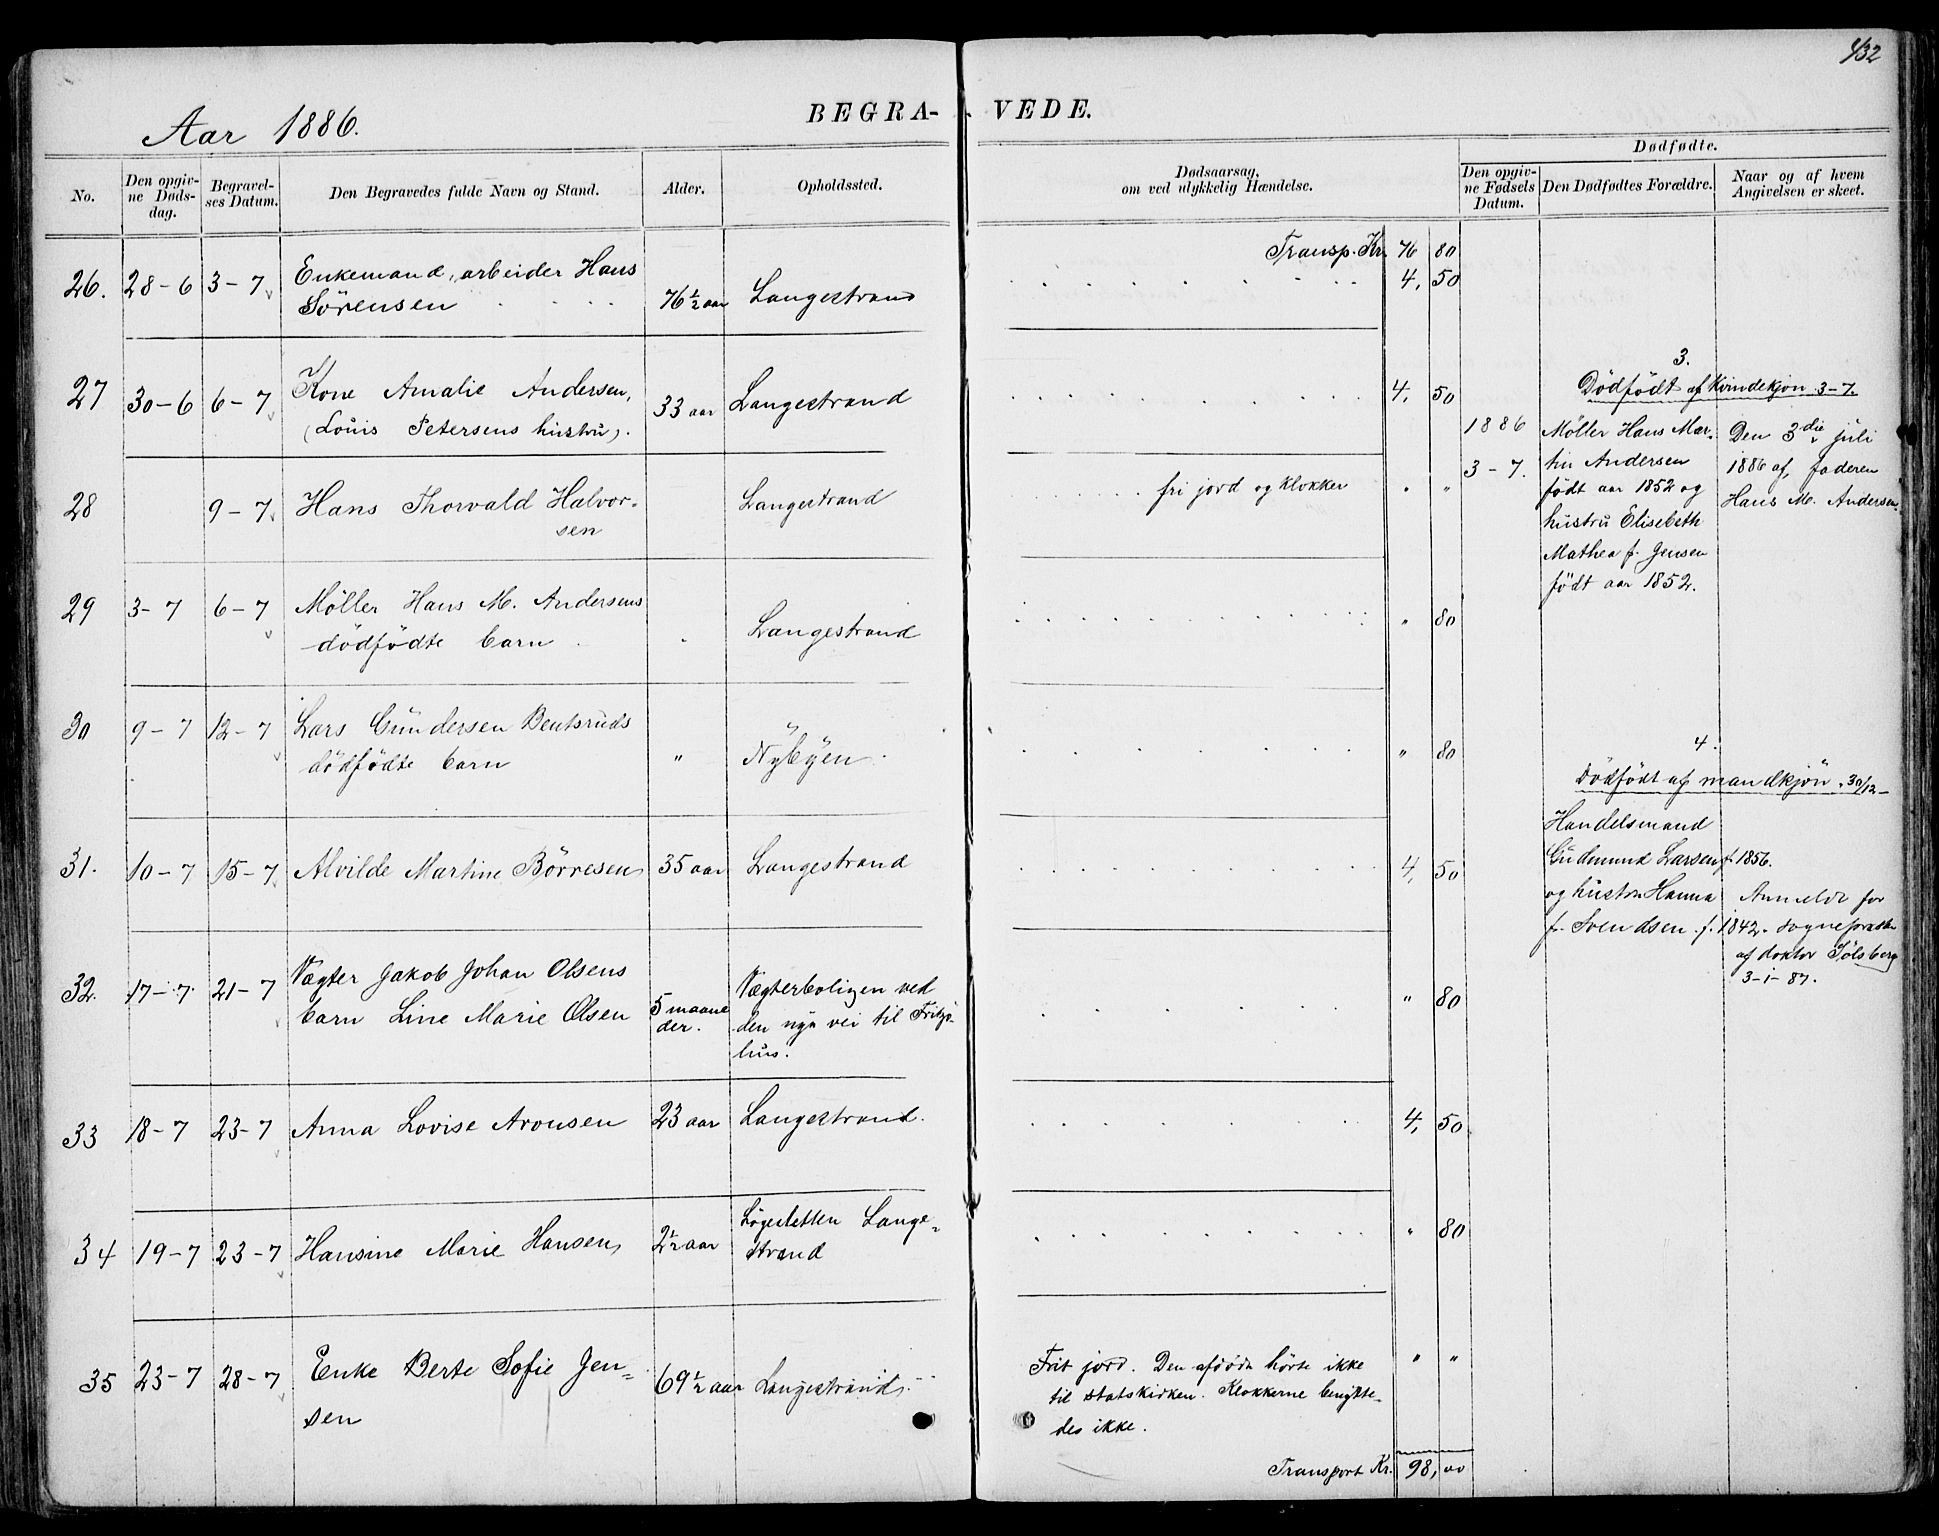 432
Aar 1886.
BEGRA- VEDE.
No.
Den opgiv-
ne Døds-
dag.
Begravel-
ses Datum.
Den Begravedes fulde Navn og Stand.
Alder.
Opholdssted.
Dødsaarsag,
om ved ulykkelig Hændelse.
Dødfødte.
Den opgiv-
ne Fødsels
Datum.
Den Dødfødtes Forældre.
Naar og af hvem
Angivelsen er skeet.
Transp. Kr. 76 80
26. 28-6 3-7 Enkemand, arbeider Hans
Sörensen 76 1/2 aar Langestrand 4, 50
27 30-6 6-7 Kone Amalie Andersen,
(Louis Petersens hustru). 33 aar Langestrand 4, 50
28 9-7 Hans Thorvald Halvor-
sen Langestrand fri jord og klokker " "
29 3-7 6-7 Möller Hans M. Andersens
dödfödte barn Langestrand " 80
30 9-7 12-7 Lars Gundersen Bentsruds
dödfödte barn " Nybyen " 80
31. 10-7 15-7 Alvilde Martine Börresen 35 aar Langestrand 4, 50
32. 17-7 21-7 Vægter Jakob Johan Olsens
barn Line Marie Olsen 5 maane
der. Vægterboligen ved
den nye vei til Fritzø-
hus. " 80
33 18-7 23-7 Anna Lovise Aronsen 23 aar Langestrand. 4, 50
34 19-7 23-7 Hansine Marie Hansen 2 1/2 aar Lange-
strand " 80
35 23-7 28-7 Enke Berte Sofie Jen-
sen 69 1/2 aar Langestrand Frit jord. Den afdöde hörte ikke
til statskirken. Klokkerne benytte-
des ikke. " "
Transport Kr. 98, 00
3.
Dödfödt af Kvindekjön 3-7.
1886
3-7.
Möller Hans Mar-
tin Andersen
födt aar 1852 og
hustru Elisebeth
Mathea f. Jensen
födt aar 1852.
Den 3die juli
1886 af, faderen
Hans M. Andersen.
4.
Dödfödt af mandkjön 30/12-
Handelsmand
Gudmund Larsen f. 1856.
og hustru Hanna
f. Svendsen f. 1842.
Anmeldt for
sognepræsten
af doktor Sölsberg
3-1-87.